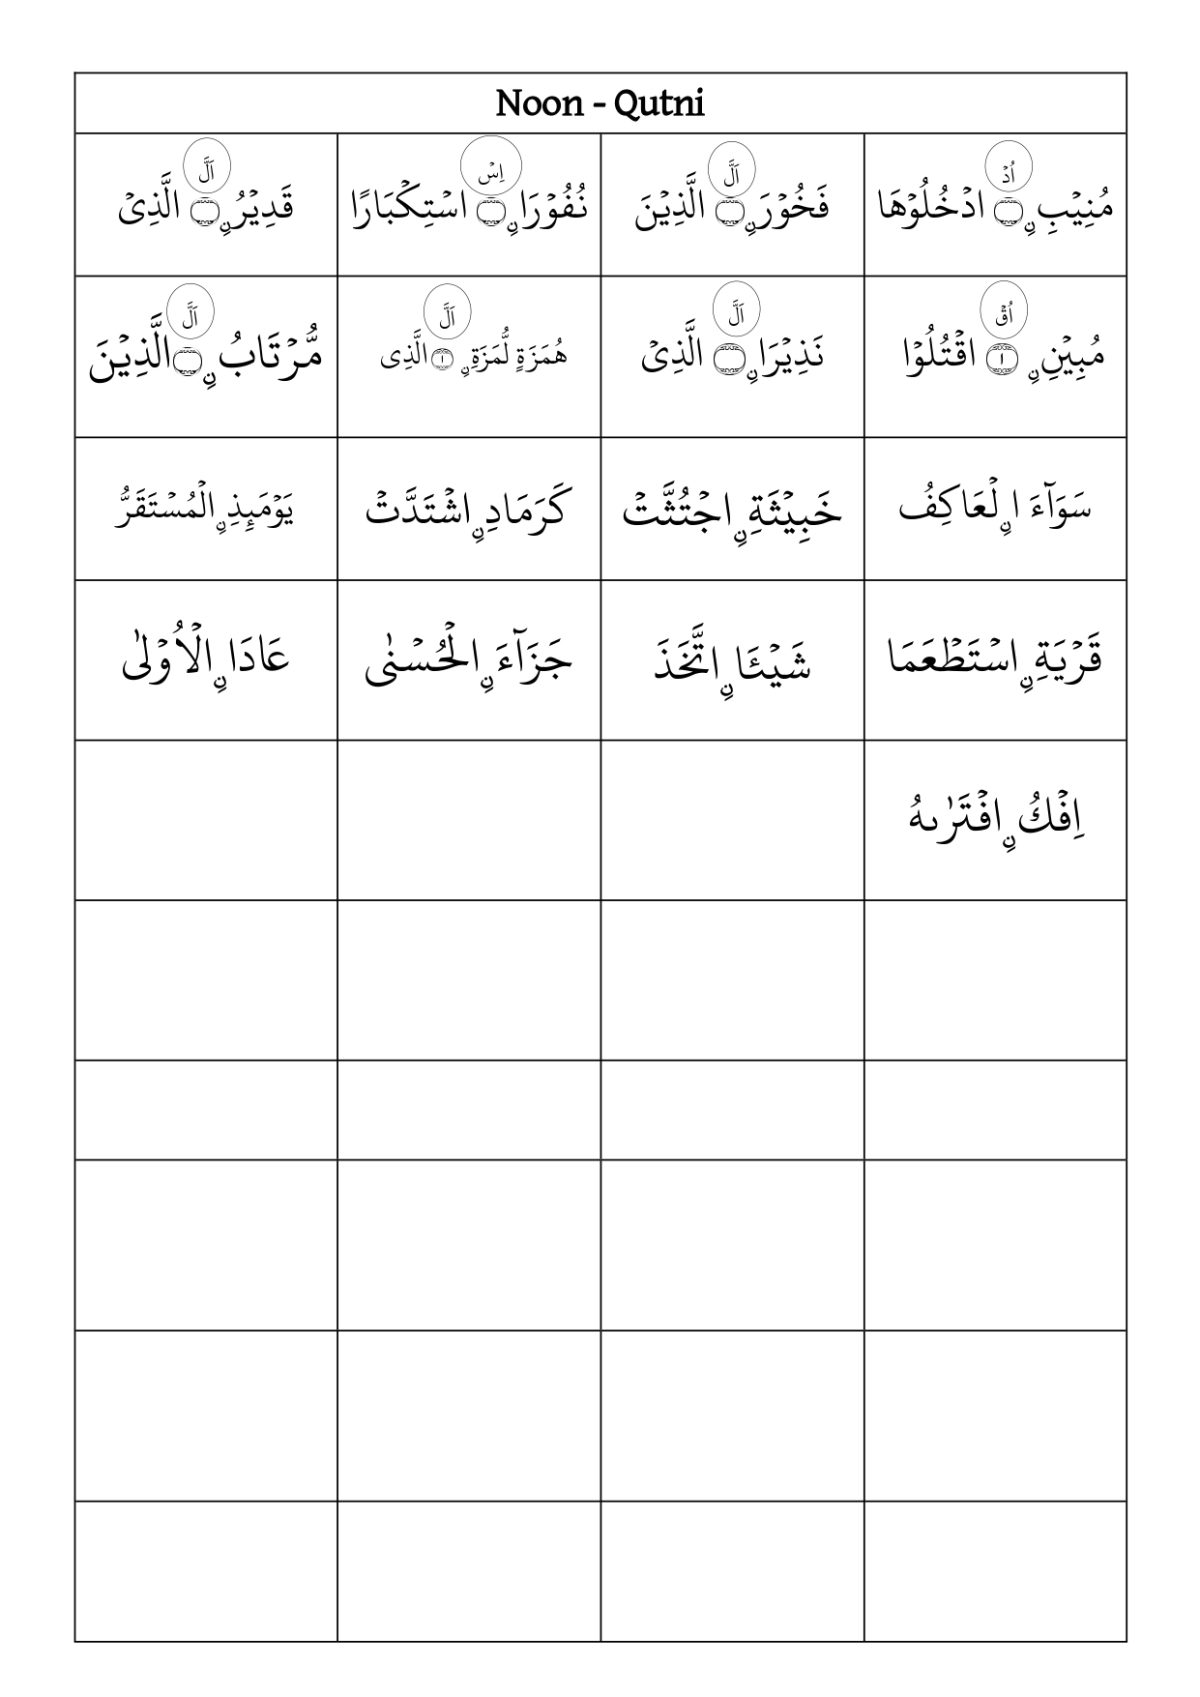 Noon - Qutni
اُدْ
مُنِيْبِ ۣ ۝ ادْخُلُوْهَا
اَلَّ
فَخُوْرَ ۣ ۝ الَّذِيْنَ
اِسْ
نُفُوْرَا ۣ ۝ اسْتِكْبَارًا
اَلَّ
قَدِيْرُ ۣ ۝ الَّذِيْ
اُقْ
مُبِيْنِ ۣ ۝١ اقْتُلُوْا
اَلَّ
نَذِيْرَا ۣ ۝ الَّذِيْ
اَلَّ
هُمَزَةٍ لُّمَزَةِ ۣ ۝١ الَّذِى
اَلَّ
مُّرْتَابُ ۣ ۝ الَّذِيْنَ
سَوَآءَ ا ۣ لْعَاكِفُ
خَبِيْثَةِ ۣ اجْتُثَّتْ
كَرَمَادِ ۣ اشْتَدَّتْ
يَوْمَئِذِ ۣ الْمُسْتَقَرُّ
قَرْيَةِ ۣ اسْتَطْعَمَا
شَيْئَا ۣ اتَّخَذَ
جَزَآءَ ۣ الْحُسْنٰى
عَادَا ۣ الْاُوْلٰى
اِفْكُ ۣ افْتَرٰىهُ